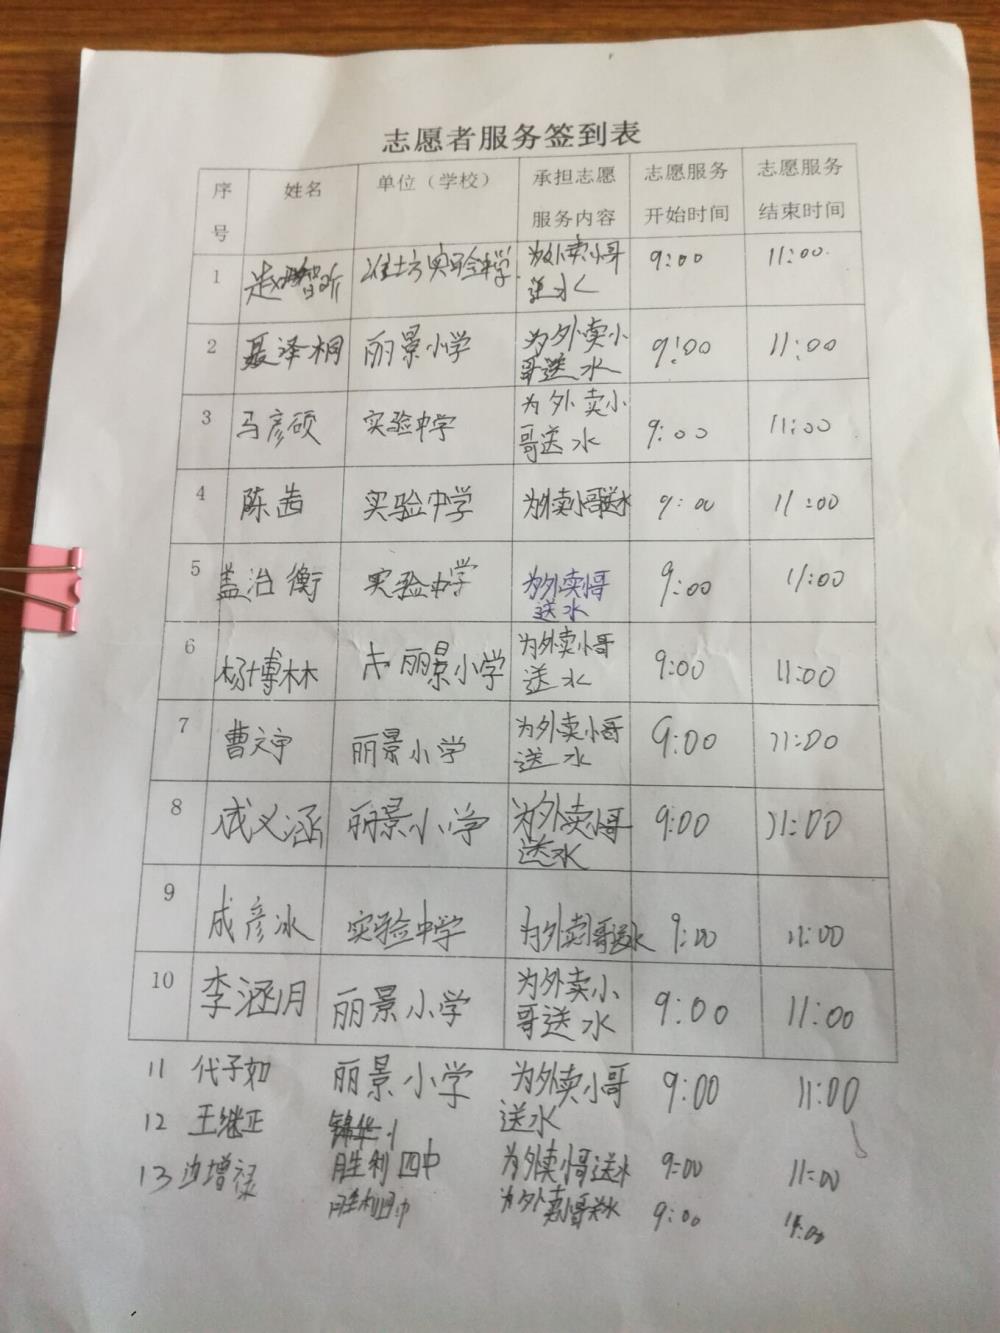 志愿者服务签到表
序号 姓名 单位（学校） 承担志愿服务内容 志愿服务开始时间 志愿服务结束时间
1 赵 智昕 实验中学 为外卖小哥送水 9:00 11:00
2 聂泽桐 丽景小学 为外卖小哥送水 9:00 11:00
3 马彦硕 实验中学 为外卖小哥送水 9:00 11:00
4 陈茜 实验中学 为外卖小哥送水 9:00 11:00
5 盖治衡 实验中学 为外卖小哥送水 9:00 11:00
6 杨博林 丽景小学 为外卖小哥送水 9:00 11:00
7 曹文宇 丽景小学 为外卖小哥送水 9:00 11:00
8 成义涵 丽景小学 为外卖小哥送水 9:00 11:00
9 成彦冰 实验中学 为外卖小哥送水 9:00 11:00
10 李涵月 丽景小学 为外卖小哥送水 9:00 11:00
11 代子如 丽景小学 为外卖小哥送水 9:00 11:00
12 王继正 锦华小
胜利四中 为外卖小哥送水 9:00 11:00
13 边增禄 胜利四中 为外卖小哥送水 9:00 11:00